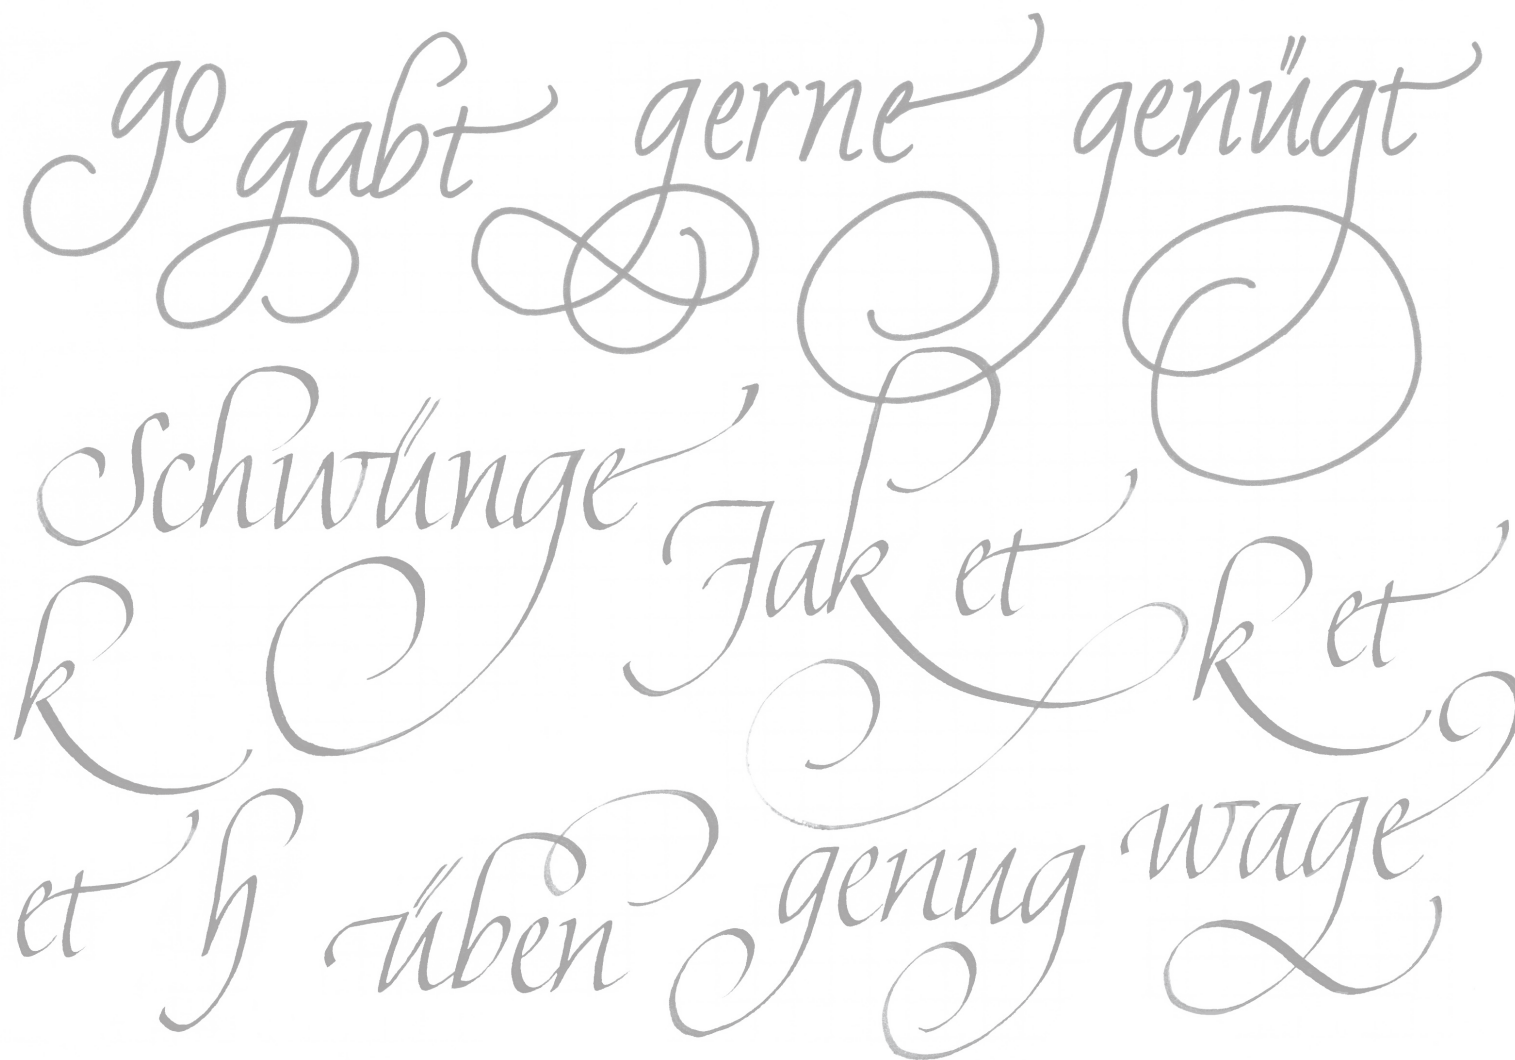 go gabt gerne genügt
Schwünge Jak et
k k et
et h üben genug wage